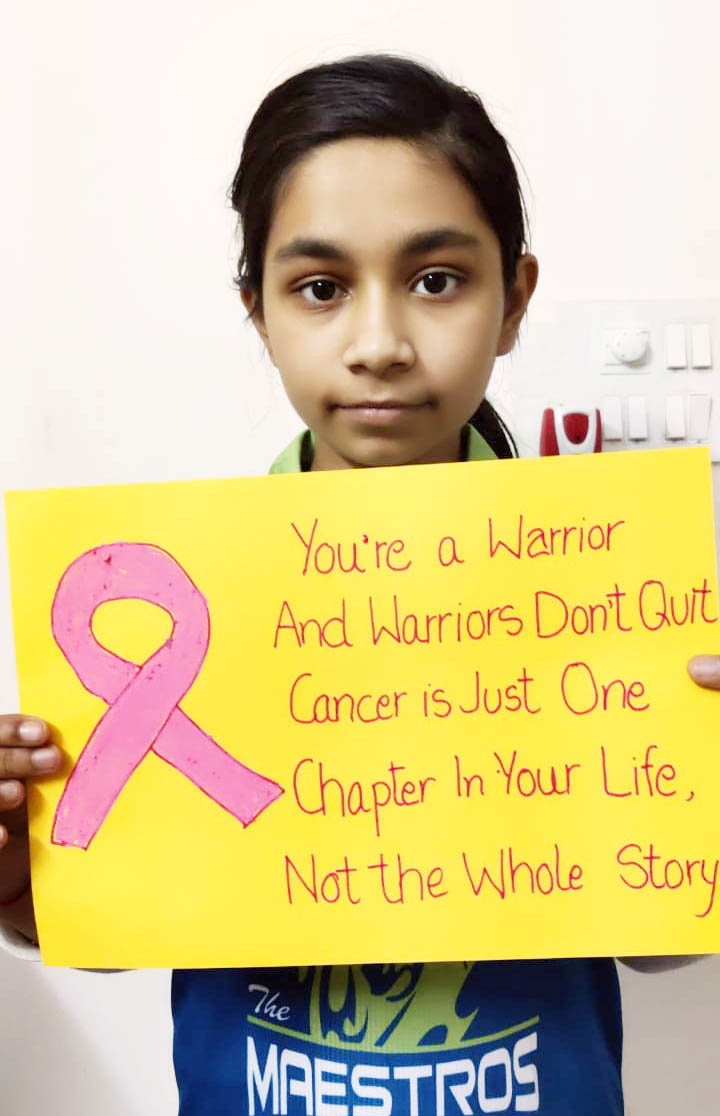 You're a Warrior
And Warriors Don't Quit
Cancer is Just One
Chapter In Your Life,
Not the Whole Story
The
MAESTROS